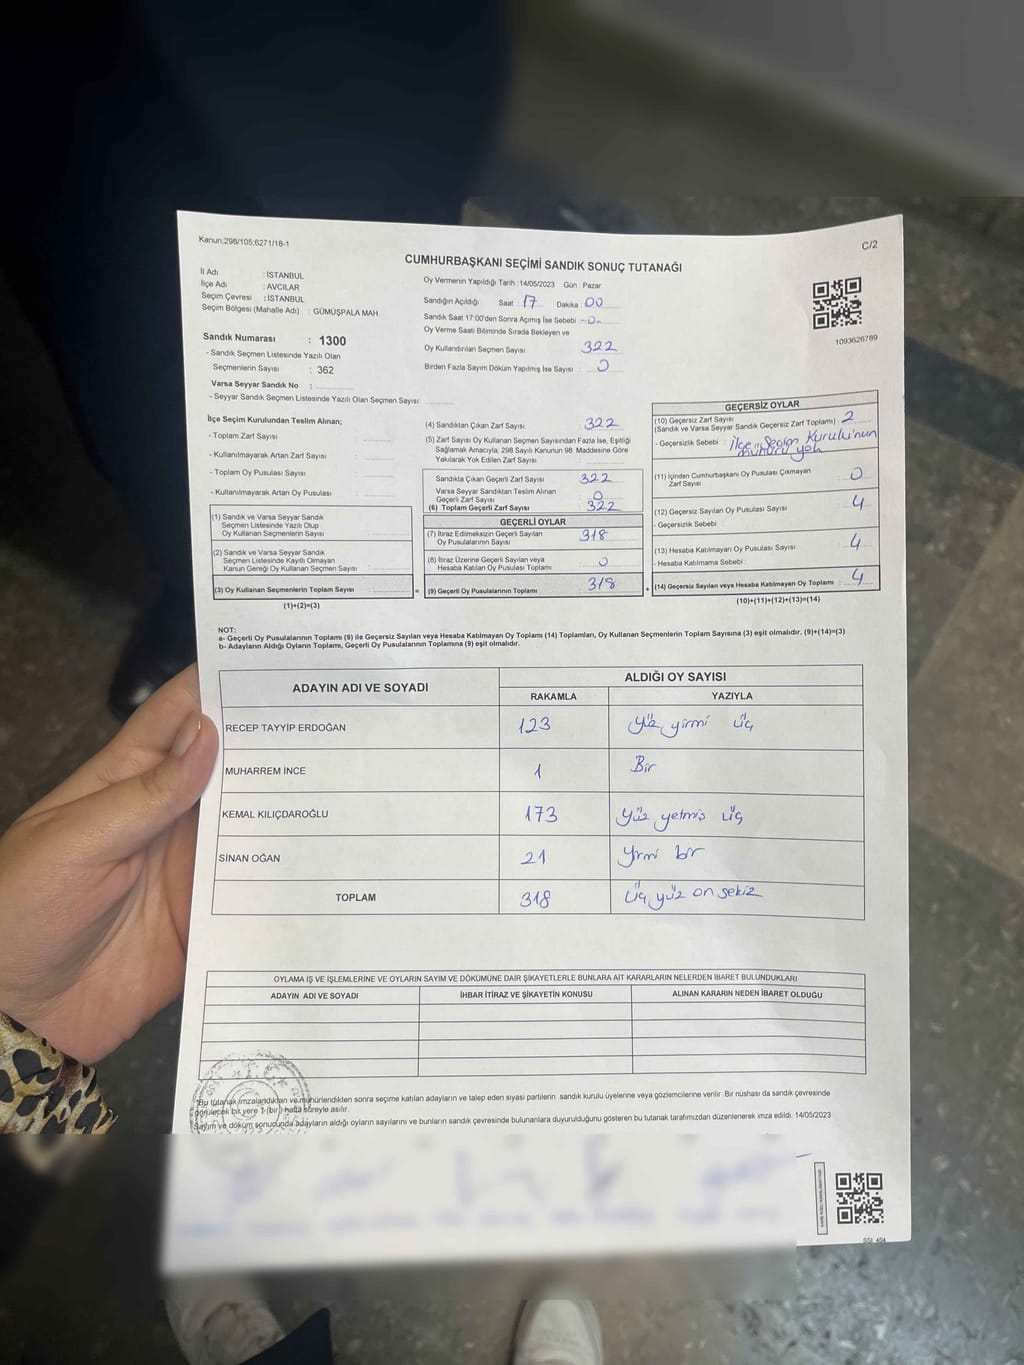 Kanun,298/105,6271/18-1
C/2
CUMHURBAŞKANI SEÇİMİ SANDIK SONUÇ TUTANAĞI
İl Adı : İSTANBUL
İlçe Adı : AVCILAR
Seçim Çevresi : İSTANBUL
Seçim Bölgesi (Mahalle Adı) : GÜMÜŞPALA MAH.
Sandık Numarası : 1300
- Sandık Seçmen Listesinde Yazılı Olan
Seçmenlerin Sayısı : 362
Varsa Seyyar Sandık No :
- Seyyar Sandık Seçmen Listesinde Yazılı Olan Seçmen Sayısı:
Oy Vermenin Yapıldığı Tarih :14/05/2023 Gün Pazar
Sandığın Açıldığı Saat : 17 Dakika 00
Sandık Saat 17:00'den Sonra Açımış İse Sebebi -0-
Oy Verme Saati Bitiminde Sırada Bekleyen ve
Oy Kullandırılan Seçmen Sayısı : 322
Birden Fazla Sayım Döküm Yapılmış İse Sayısı : 0
1093626789
İlçe Seçim Kurulundan Teslim Alınan;
- Toplam Zarf Sayısı
- Kullanılmayarak Artan Zarf Sayısı
- Toplam Oy Pusulası Sayısı
- Kullanılmayarak Artan Oy Pusulası
(1) Sandık ve Varsa Seyyar Sandık
Seçmen Listesinde Yazılı Olup
Oy Kullanan Seçmenlerin Sayısı
(2) Sandık ve Varsa Seyyar Sandık
Seçmen Listesinde Kayıtlı Olmayan
Kanun Gereği Oy Kullanan Seçmen Sayısı
(3) Oy Kullanan Seçmenlerin Toplam Sayısı
(1)+(2)=(3)
(4) Sandıktan Çıkan Zarf Sayısı : 322
(5) Zarf Sayısı Oy Kullanan Seçmen Sayısından Fazla İse, Eşitliği
Sağlamak Amacıyla, 298 Sayılı Kanunun 98. Maddesine Göre
Yakılarak Yok Edilen Zarf Sayısı
Sandıkta Çıkan Geçerli Zarf Sayısı : 322
Varsa Seyyar Sandıktan Teslim Alınan
Geçerli Zarf Sayısı : 0
(6) Toplam Geçerli Zarf Sayısı : 322
GEÇERLİ OYLAR
(7) İtiraz Edilmeksizin Geçerli Sayılan
Oy Pusulalarının Sayısı 318
(8) İtiraz Üzerine Geçerli Sayılan veya
Hesaba Katılan Oy Pusulası Toplamı 0
= (9) Geçerli Oy Pusulalarının Toplamı : 318
GEÇERSİZ OYLAR
(10) Geçersiz Zarf Sayısı
(Sandık ve Varsa Seyyar Sandık Geçersiz Zarf Toplamı) : 2
- Geçersizlik Sebebi : ilçe Seçim Kurulu'nun
mührü yok
(11) İçinden Cumhurbaşkanı Oy Pusulası Çıkmayan
Zarf Sayısı 0
(12) Geçersiz Sayılan Oy Pusulası Sayısı 4
- Geçersizlik Sebebi :
(13) Hesaba Katılmayan Oy Pusulası Sayısı 4
- Hesaba Katılmama Sebebi
+ (14) Geçersiz Sayılan veya Hesaba Katılmayan Oy Toplamı : 4
(10)+(11)+(12)+(13)=(14)
NOT:
a- Geçerli Oy Pusulalarının Toplamı (9) ile Geçersiz Sayılan veya Hesaba Katılmayan Oy Toplamı (14) Toplamları, Oy Kullanan Seçmenlerin Toplam Sayısına (3) eşit olmalıdır. (9)+(14)=(3)
b- Adayların Aldığı Oyların Toplamı, Geçerli Oy Pusulalarının Toplamına (9) eşit olmalıdır.
ADAYIN ADI VE SOYADI ALDIĞI OY SAYISI
RAKAMLA YAZIYLA
RECEP TAYYİP ERDOĞAN 123 yüz yirmi üç
MUHARREM İNCE 1 Bir
KEMAL KILIÇDAROĞLU 173 yüz yetmiş üç
SİNAN OĞAN 21 yirmi bir
TOPLAM 318 üç yüz on sekiz
OYLAMA İŞ VE İŞLEMLERİNE VE OYLARIN SAYIM VE DÖKÜMÜNE DAİR ŞİKAYETLERLE BUNLARA AİT KARARLARIN NELERDEN İBARET BULUNDUKLARI
ADAYIN ADI VE SOYADI İHBAR İTİRAZ VE ŞİKAYETİN KONUSU ALINAN KARARIN NEDEN İBARET OLDUĞU
Bu tutanak imzalandıktan ve mühürlendikten sonra seçime katılan adayların ve talep eden siyasi partilerin sandık kurulu üyelerine veya gözlemcilerine verilir. Bir nüshası da sandık çevresinde
görülecek bir yere 1 (bir) hafta süreyle asılır.
Sayım ve döküm sonucunda adayların aldığı oyların sayılarını ve bunların sandık çevresinde bulunanlara duyurulduğunu gösteren bu tutanak tarafımızdan düzenlenerek imza edildi. 14/05/2023